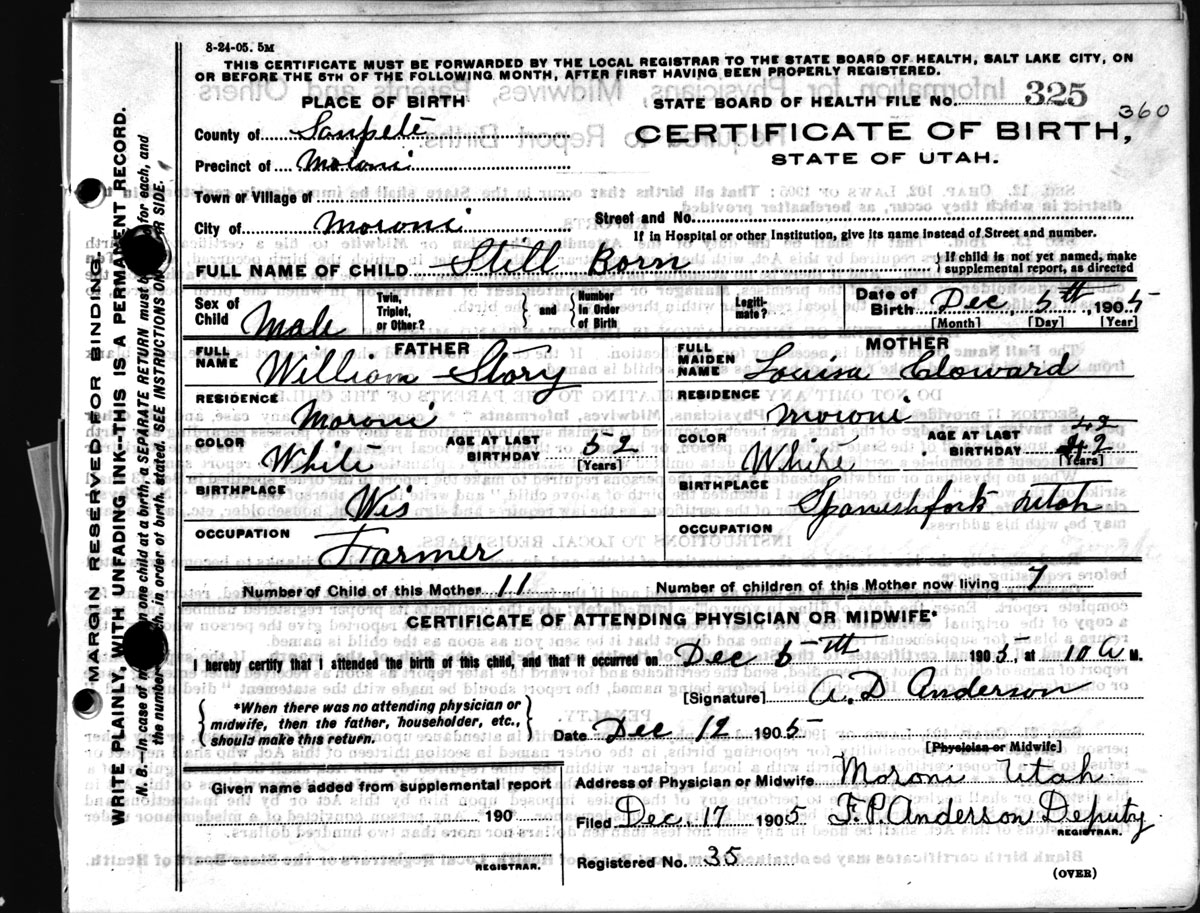 8-24-05. 5M
THIS CERTIFICATE MUST BE FORWARDED BY THE LOCAL REGISTRAR TO THE STATE BOARD OF HEALTH, SALT LAKE CITY, ON
OR BEFORE THE 5TH OF THE FOLLOWING MONTH, AFTER FIRST HAVING BEEN PROPERLY REGISTERED.
PLACE OF BIRTH
STATE BOARD OF HEALTH FILE No. 325
360
County of Sanpete
CERTIFICATE OF BIRTH,
STATE OF UTAH.
Precinct of Moroni
Town or Village of
City of Moroni
Street and No.
If in Hospital or other Institution, give its name instead of Street and number.
FULL NAME OF CHILD Still Born
} If child is not yet named, make supplemental report, as directed
Sex of Child Male
Twin, Triplet, or Other? { and } Number in Order of Birth
Legitimate?
Date of Birth Dec, 5th, 1905
[Month] [Day] [Year]
FATHER
FULL NAME William Story
RESIDENCE Moroni
COLOR White AGE AT LAST BIRTHDAY 52 [Years]
BIRTHPLACE Wis
OCCUPATION Farmer
MOTHER
FULL MAIDEN NAME Louisa Cloward
RESIDENCE Moroni
42
COLOR White AGE AT LAST BIRTHDAY 42 [Years]
BIRTHPLACE Spanishfork Utah
OCCUPATION
Number of Child of this Mother 11 Number of children of this Mother now living 7
CERTIFICATE OF ATTENDING PHYSICIAN OR MIDWIFE*
I hereby certify that I attended the birth of this child, and that it occurred on Dec 5th 1905, at 10 A M.
[Signature] A. D Anderson
{ *When there was no attending physician or midwife, then the father, householder, etc., should make this return. }
Date Dec 12 1905
[Physician or Midwife]
Given name added from supplemental report
190
REGISTRAR.
Address of Physician or Midwife Moroni Utah
Filed Dec, 17 1905 F. P. Anderson Deputy
REGISTRAR.
Registered No. 35
(OVER)
MARGIN RESERVED FOR BINDING.
WRITE PLAINLY, WITH UNFADING INK--THIS IS A PERMANENT RECORD.
N. B.--In case of more than one child at a birth, a SEPARATE RETURN must be for each, and
the number in order of birth, stated. SEE INSTRUCTIONS ON SIDE.